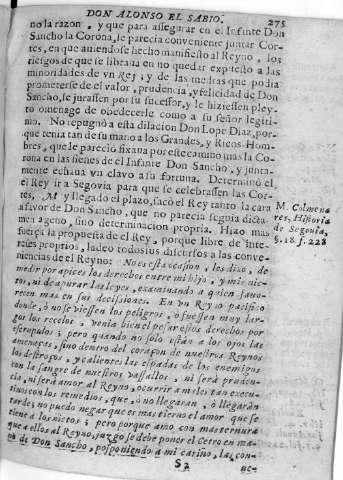 DON ALONSO EL SABIO. 275
no la razon, y que para assegurar en el Infante Don
Sancho la Corona, le parecia conveniente juntar Cor-
tes, en que auiendose hecho manifiesto al Reyno, los
riesgos de que se libraua en no quedar expuesto a las
minoridades de vn Rey; y de las medras que podia
prometerse de el valor, prudencia, y felicidad de Don
Sancho, se jurassen por su sucessor, y le hiziessen pley-
to omenage de obedecerle como a su señor legiti-
mo. No repugnó a esta dilacion Don Lope Diaz, por-
que tenia tan de su mano a los Grandes, y Ricos Hom-
bres, que le pareciò fixaua por este camino mas la Co-
rona en las sienes de el Infante Don Sancho, y junta-
mente echaua vn clavo a su fortuna. Determinò el
el Rey ir a Segovia para que se celebrassen las Cor-
tes, M y llegado el plazo, sacò el Rey tanto la cara
a favor de Don Sancho, que no parecia seguia dicta-
men ageno, sino determinacion propria. Hizo mas
fuerça la propuesta de el Rey, porque libre de inte-
reses proprios, ladeo todos sus discursos a las conve-
niencias de el Reyno: No es esta ocasion, les dixo, de
medir por apices los derechos entre mi hijo, y mis nie-
tos, ni de apurar las leyes, examinando a quien favo-
recen mas en sus decissiones. En vn Reyno pacifico
donde, ò no se viessen los peligros, ò fuessen muy lar-
gos los recelos, venia bien el pesar estos derechos por
escrupulos; pero quando no solo están a los ojos las
amenaças, sino dentro del coraçon de nuestros Reynos
los destroços, y calientes las espadas de los enemigos
con la sangre de nuestros vassallos, ni serà pruden-
cia, ni serà amor al Reyno, ocurrir a males tan execu-
tivos con los remedios, que, ò no llegaràn, ò llegaràn
tarde; no puedo negar que es mas tierno el amor que se
tiene a los nietos; pero porque amo con mas ternura
que a ellos al Reyno, juzgo se debe poner el Cetro en ma-
no de Don Sancho, posponiendo a mi cariño, la con-
S 2 ue-
M. Colmena
res, Historia
de Segouia,
§. 18 f. 228